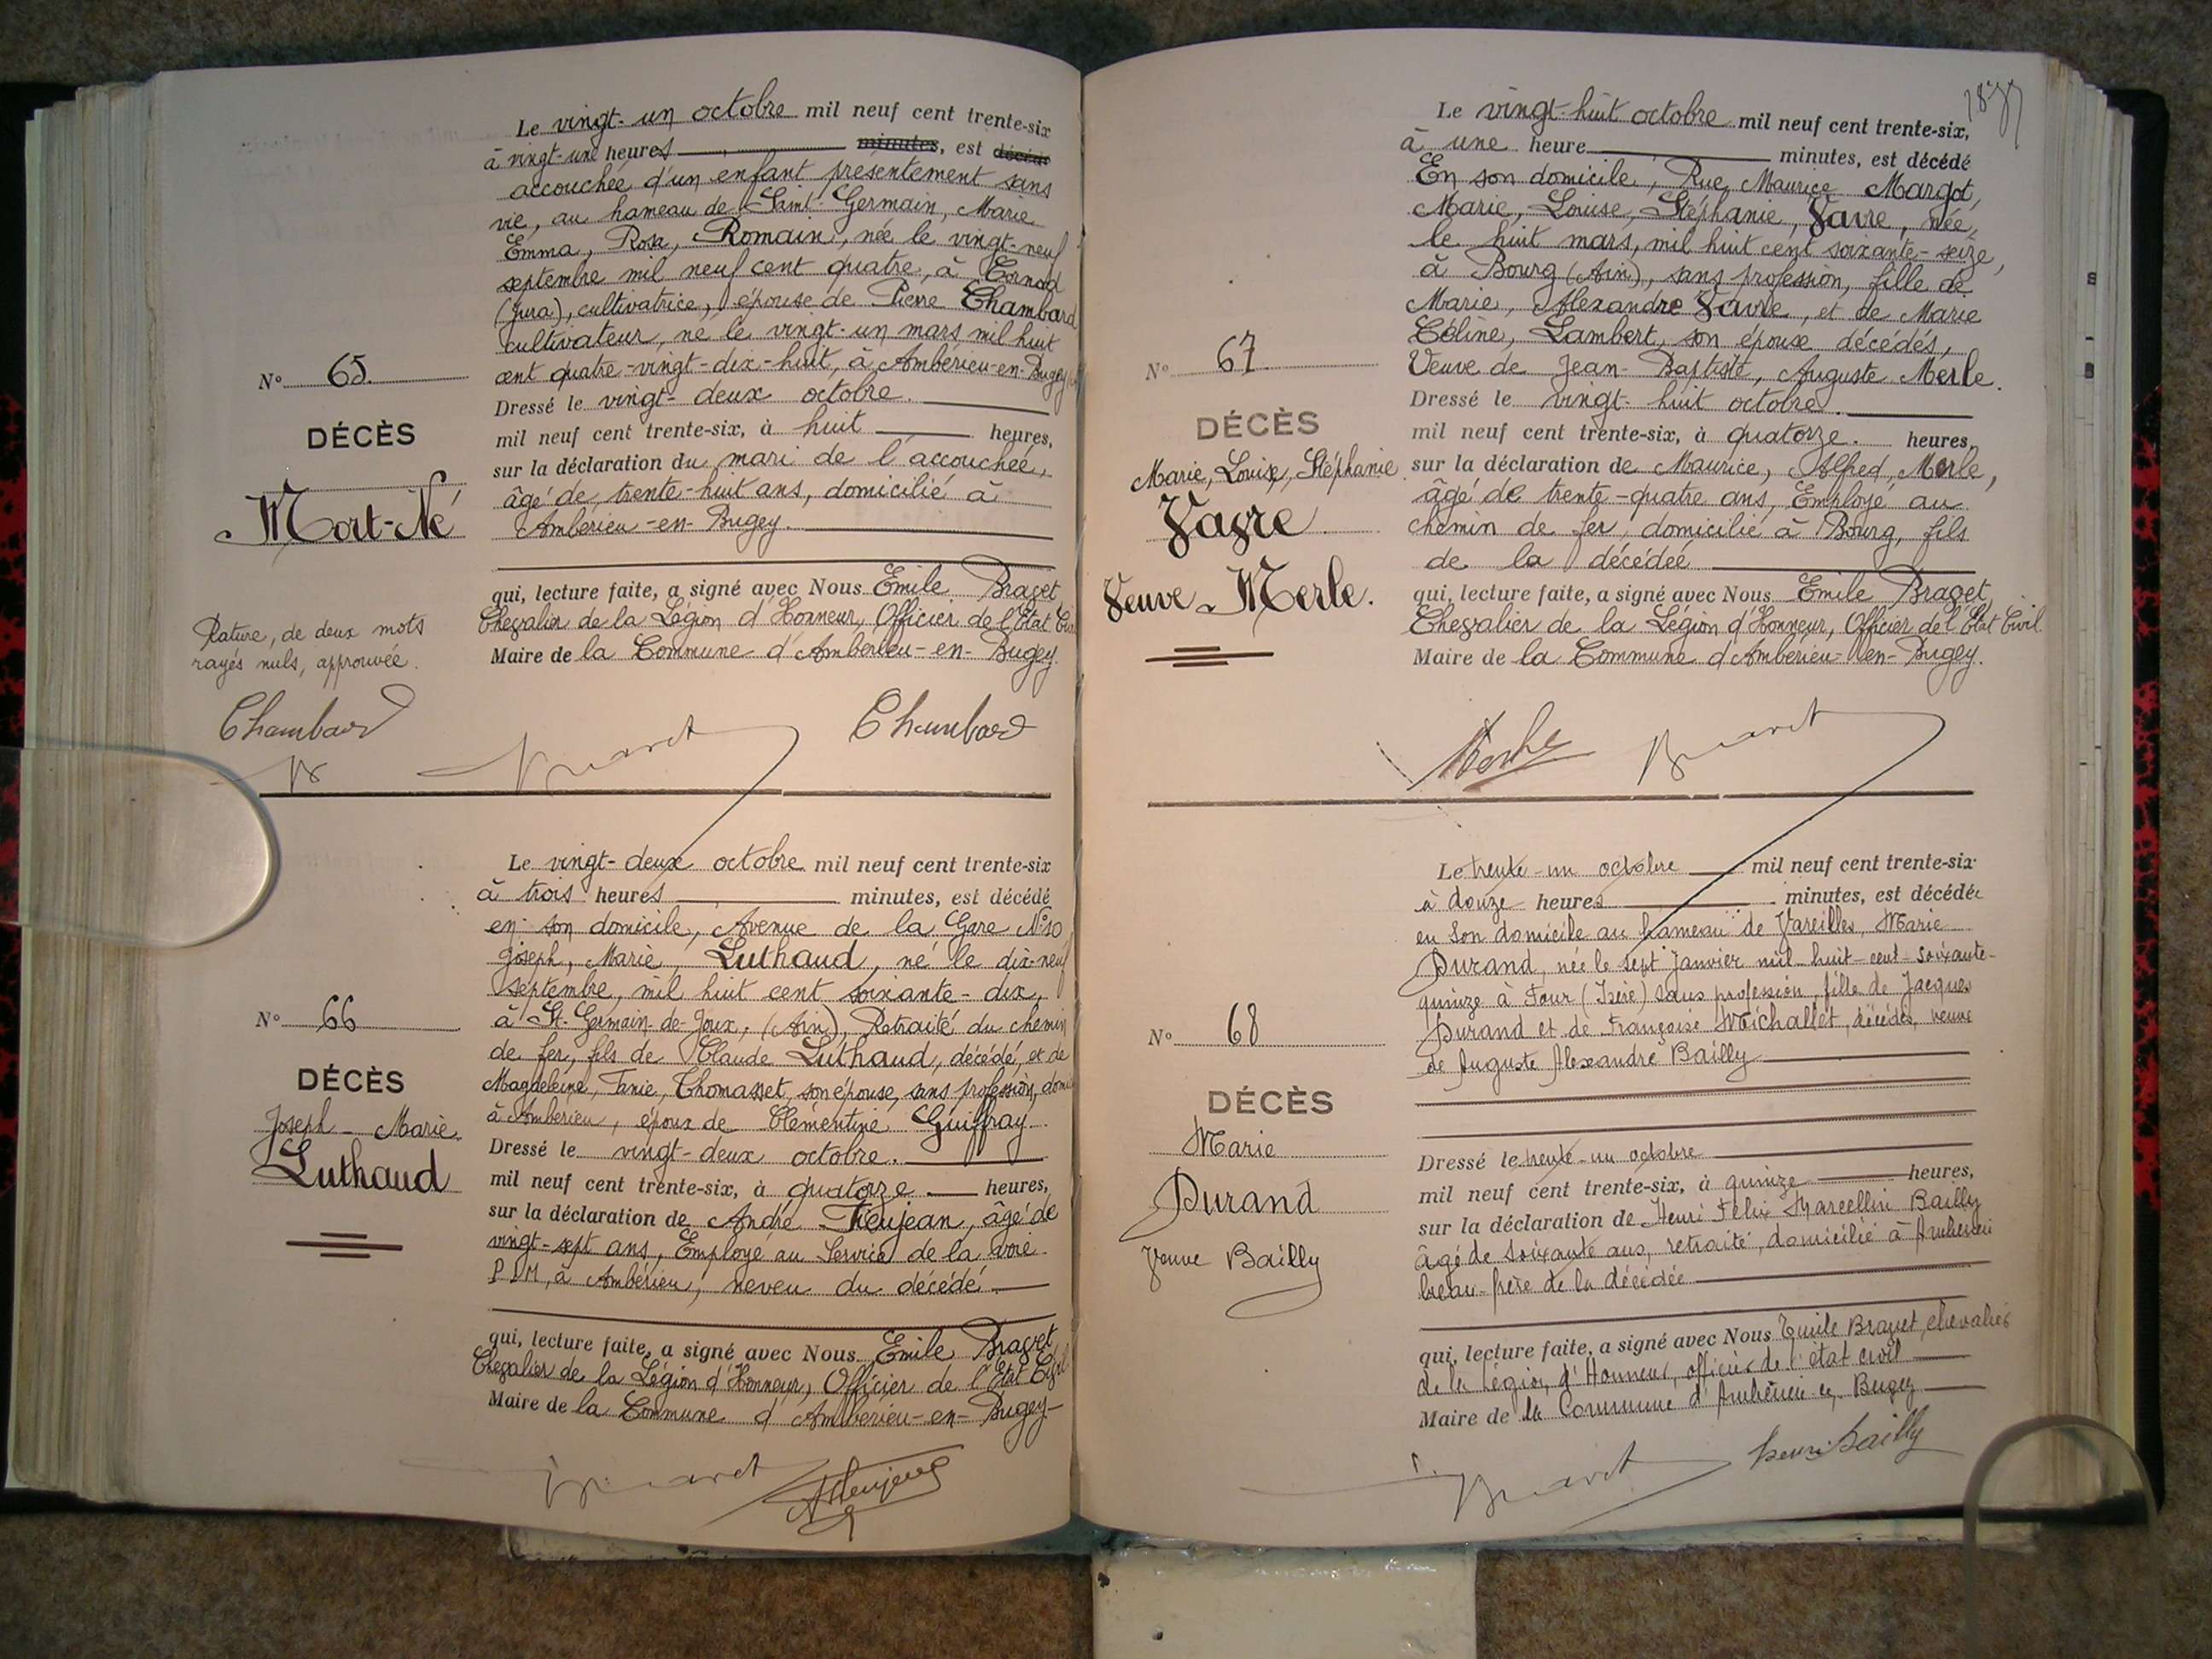 Le vingt-un octobre mil neuf cent trente-six
à vingt-une heures minutes, est décédé
accouchée d'un enfant présentement sans
vie, au hameau de Saint-Germain, Marie
Emma, Rosa, Romain, née le vingt-neuf
septembre mil neuf cent quatre, à Cornod
(Jura), cultivatrice, épouse de Pierre Chambard
cultivateur, né le vingt-un mars mil huit
cent quatre-vingt-dix-huit, à Ambérieu-en-Bugey
Nº 65.
DÉCÈS
Mort-Né
Dressé le vingt-deux octobre.
mil neuf cent trente-six, à huit heures,
sur la déclaration du mari de l'accouchée,
âgé de trente-huit ans, domicilié à
Ambérieu-en-Bugey.
qui, lecture faite, a signé avec Nous Emile Bravet
Chevalier de la Légion d'Honneur, Officier de l'Etat Civil
Maire de la Commune d'Ambérieu-en-Bugey.
Rature, de deux mots
rayés nuls, approuvée.
Chambard
Bravet
Chambard
B
Le vingt-deux octobre mil neuf cent trente-six
à trois heures minutes, est décédé
en son domicile, Avenue de la Gare Nº10
Joseph, Marie, Luthaud, né le dix-neuf
septembre, mil huit cent soixante-dix,
à St-Germain-de-Joux, (Ain), Retraité du chemin
de fer, fils de Claude Luthaud, décédé, et de
Magdeleine, Fanie, Thomasset, son épouse, sans profession,
à Ambérieu, époux de Clémentine Guiffray.
Nº 66
DÉCÈS
Joseph-Marie
Luthaud
Dressé le vingt-deux octobre.
mil neuf cent trente-six, à quatorze heures,
sur la déclaration de André Fieujean, âgé de
vingt-sept ans, Employé au Service de la voie
PLM, à Ambérieu, neveu du décédé
qui, lecture faite, a signé avec Nous Emile Bravet
Chevalier de la Légion d'Honneur, Officier de l'Etat Civil
Maire de la Commune d'Ambérieu-en-Bugey-
Bravet
Le vingt-huit octobre mil neuf cent trente-six,
à une heure minutes, est décédé
En son domicile, Rue Maurice Margot,
Marie, Louise, Stéphanie, Favre, née,
le huit mars, mil huit cent soixante-seize,
à Bourg (Ain), sans profession, fille de
Marie, Alexandre Favre, et de Marie
Céline, Lambert, son épouse décédés,
Veuve de Jean-Baptiste, Auguste Merle.
Nº 67
DÉCÈS
Marie, Louise, Stéphanie
Favre
Veuve Merle.
Dressé le vingt-huit octobre.
mil neuf cent trente-six, à quatorze. heures,
sur la déclaration de Maurice, Alfred, Merle,
âgé de trente-quatre ans, Employé au
chemin de fer, domicilié à Bourg, fils
de la décédée
qui, lecture faite, a signé avec Nous Emile Bravet
Chevalier de la Légion d'Honneur, Officier de l'Etat Civil
Maire de la Commune d'Ambérieu-en-Bugey.
Merle
Bravet
Le trente-un octobre mil neuf cent trente-six
à douze heures minutes, est décédée
en son domicile au hameau de Vareilles, Marie
Durand, née le sept Janvier mil-huit-cent-soixante-
quinze à Four (Isère) sans profession, fille de Jacques
Durand et de Françoise Michallet, décédés, veuve
de Auguste Alexandre Bailly
Nº 68
DÉCÈS
Marie
Durand
Veuve Bailly
Dressé le trente-un octobre
mil neuf cent trente-six, à quinze heures,
sur la déclaration de Henri Félix Marcellin Bailly
âgé de soixante ans, retraité, domicilié à Ambérieu
beau-frère de la décédée
qui, lecture faite, a signé avec Nous Emile Bravet, chevalier
de la Légion d'Honneur, officier de l'état civil
Maire de la Commune d'Ambérieu en Bugey
Bravet
henri Bailly